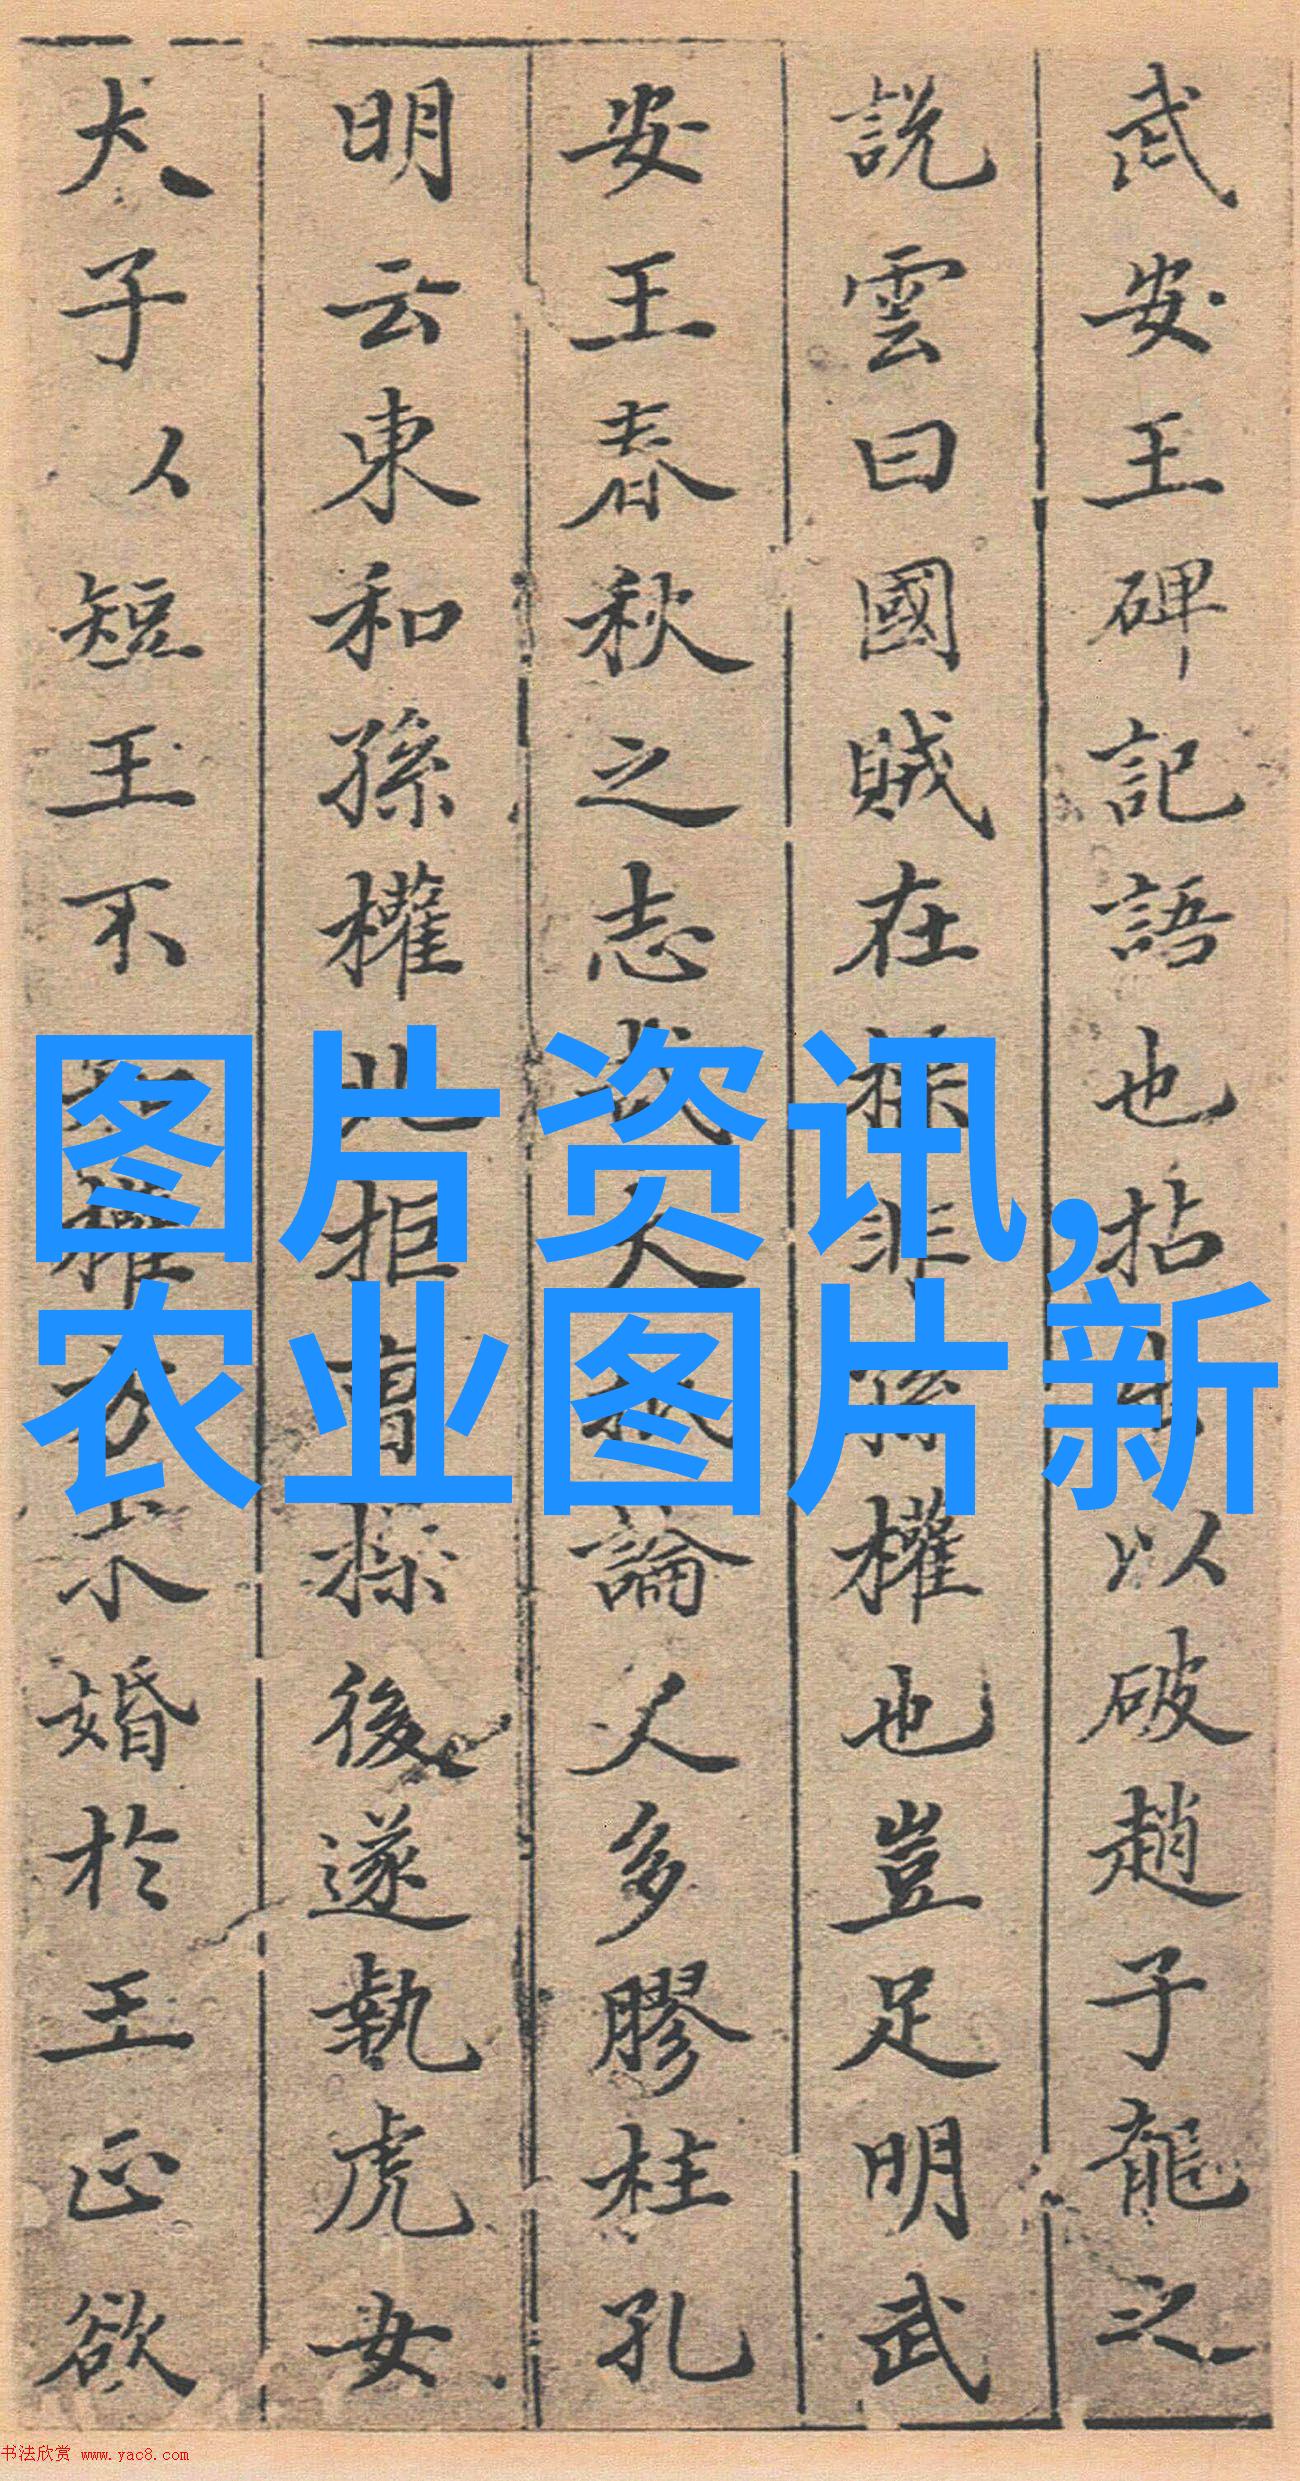 武安王碑記語也拈以破趙子龍之
說雲曰國賊在操非孫權也豈足明武
安王春秋之志哉夫論人多膠柱孔
明云東和孫權北拒曹操後遂執虎女
犬子短王不權方求婚於王正欲
图片资讯,
农业图片新
书法欣赏 www.yac8.com